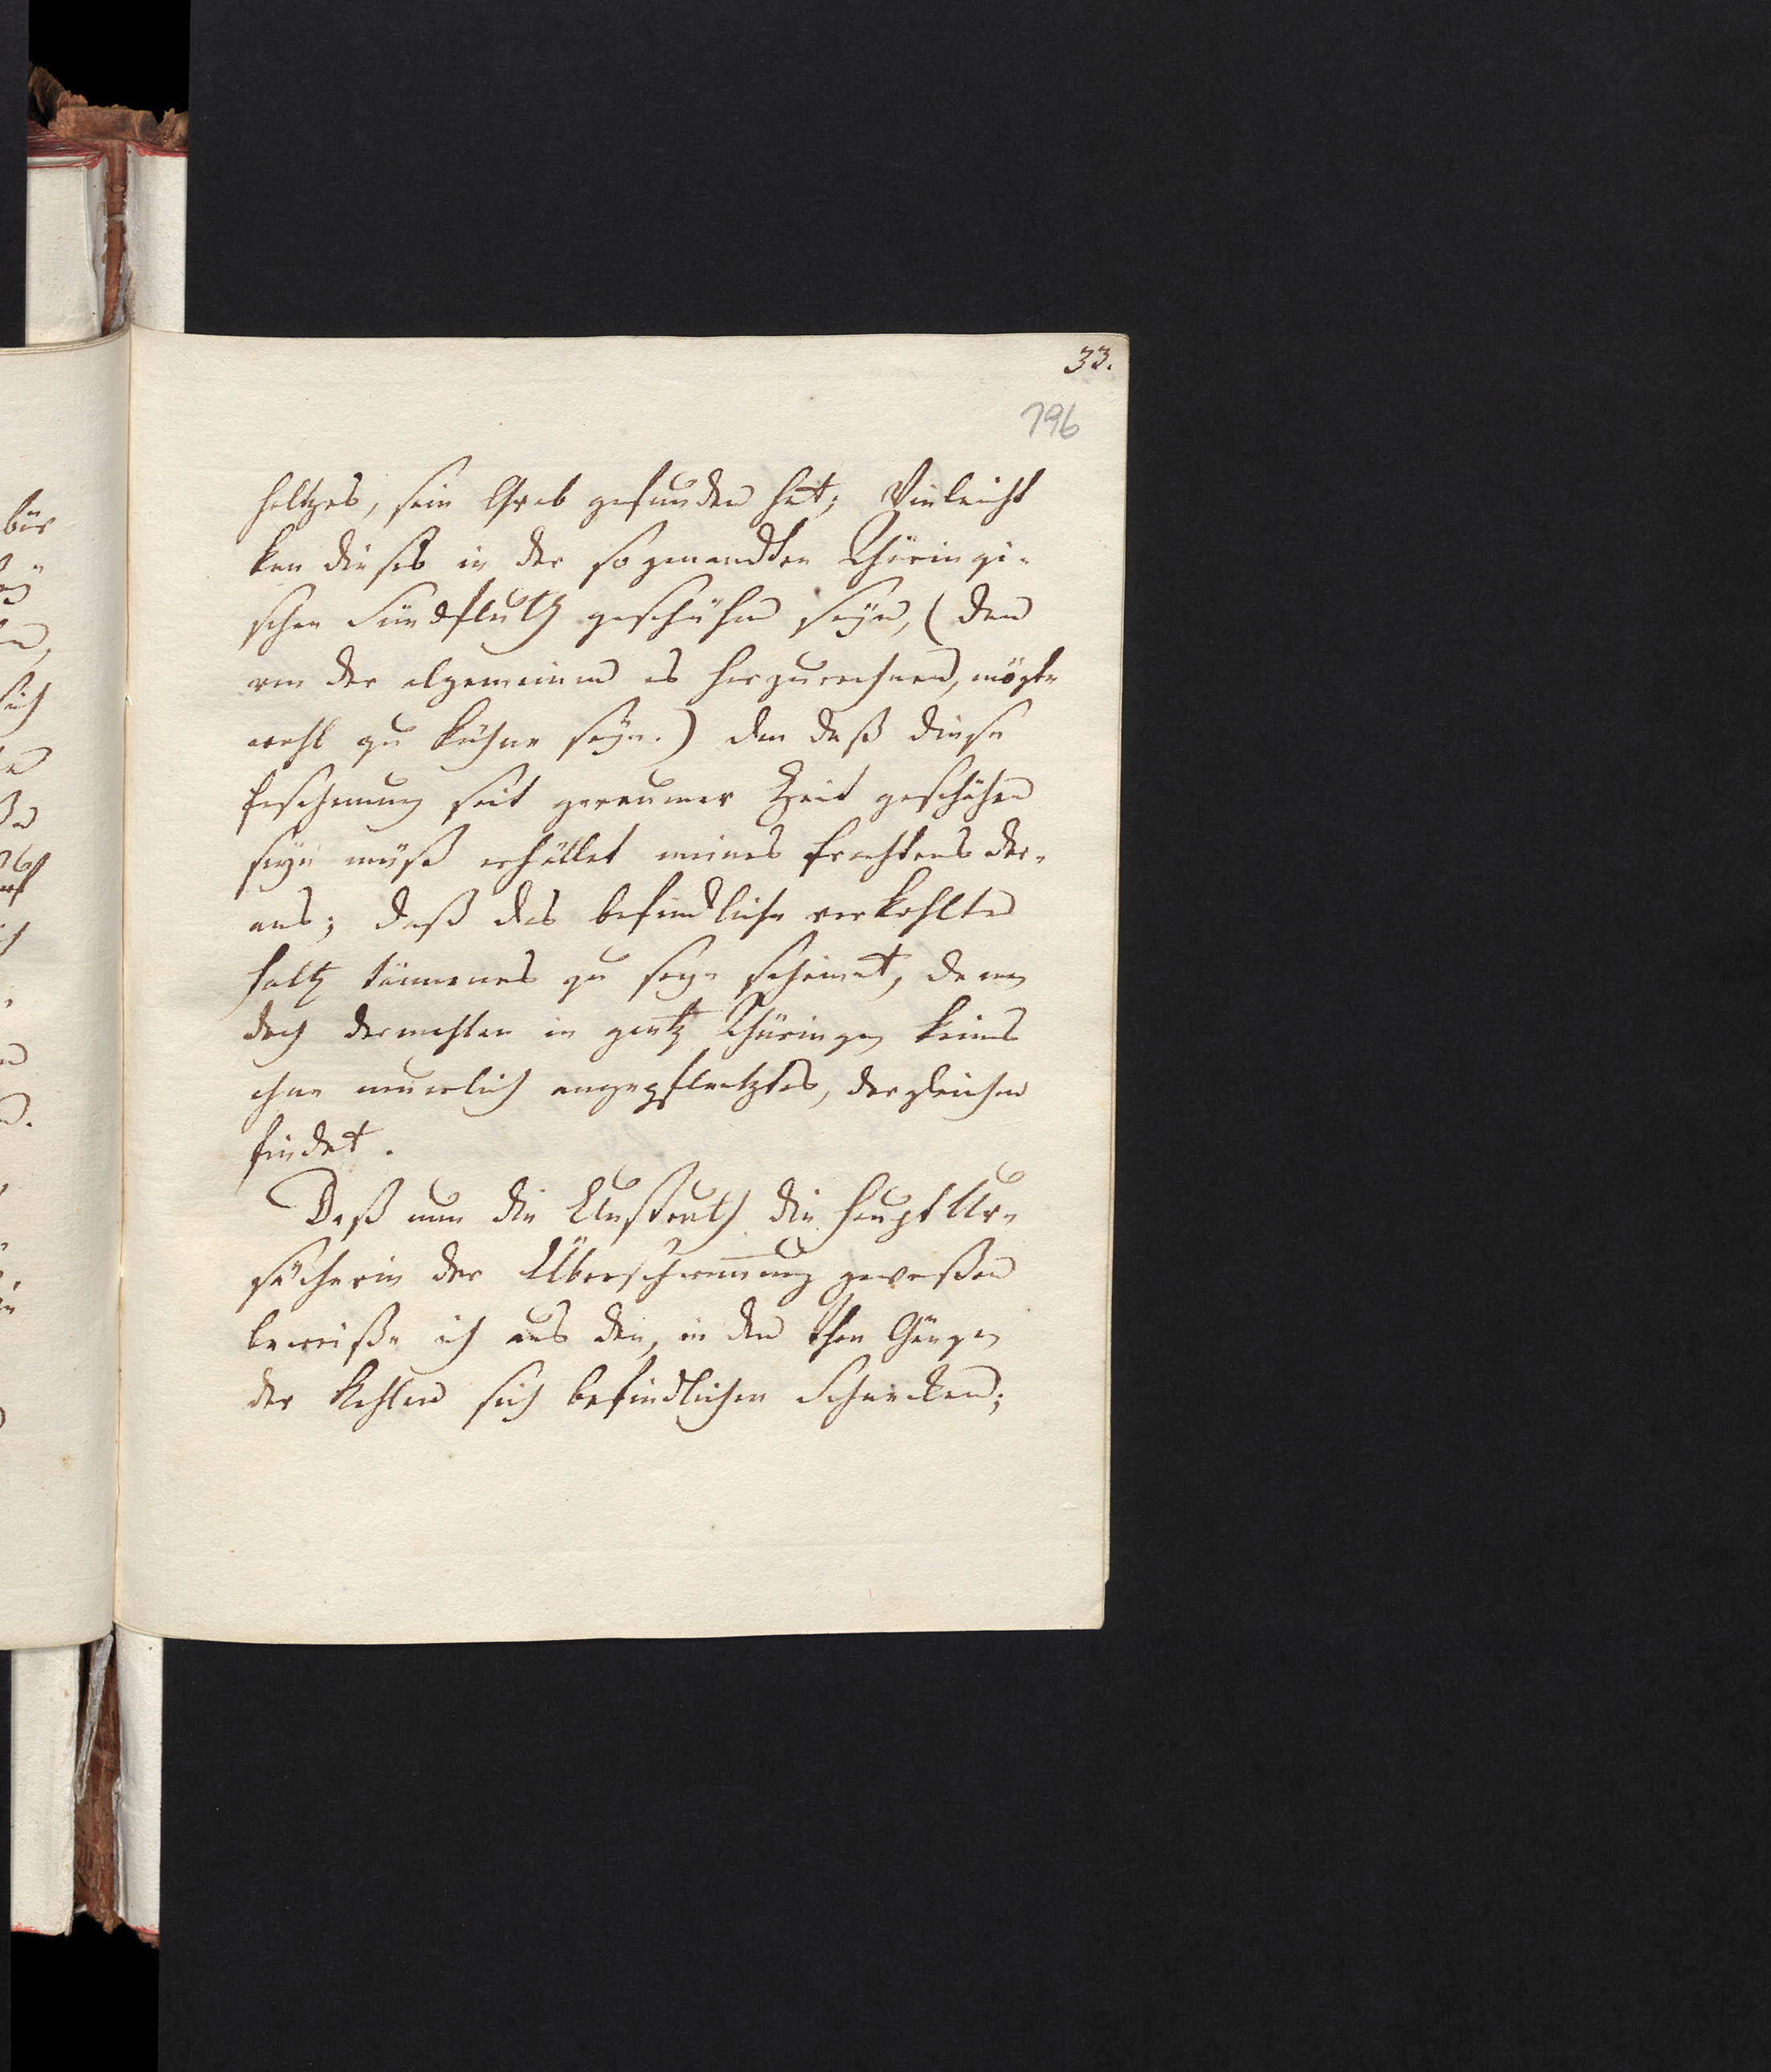 33.
796
holtzes, sein Grab gefunden hat; Vieleicht
kan dieses in der sogenandten Thüringi-
schen Sündfluth geschühen seyn, (den
von der algemeinen es herzurechnen, mögte
wohl zu kühne seyn.) den daß diese
seit geraumer Zeit geschühen
seyn müß erhället meines Erachtens dar-
aus; daß das befindliche verkohlte
Holtz tännenes zu seyn scheinet, da man
doch dermahlen in gantz Thüringen keines
ohne neuerlich angepflantztes, dergleichen
findet.
Daß nun die Unstruth die Haupt Ur-
sächerin der Überschwemung geweßen
beweiße ich aus den, in den Thon Gängen
der Kohlen sich befindlichen Schnecken;